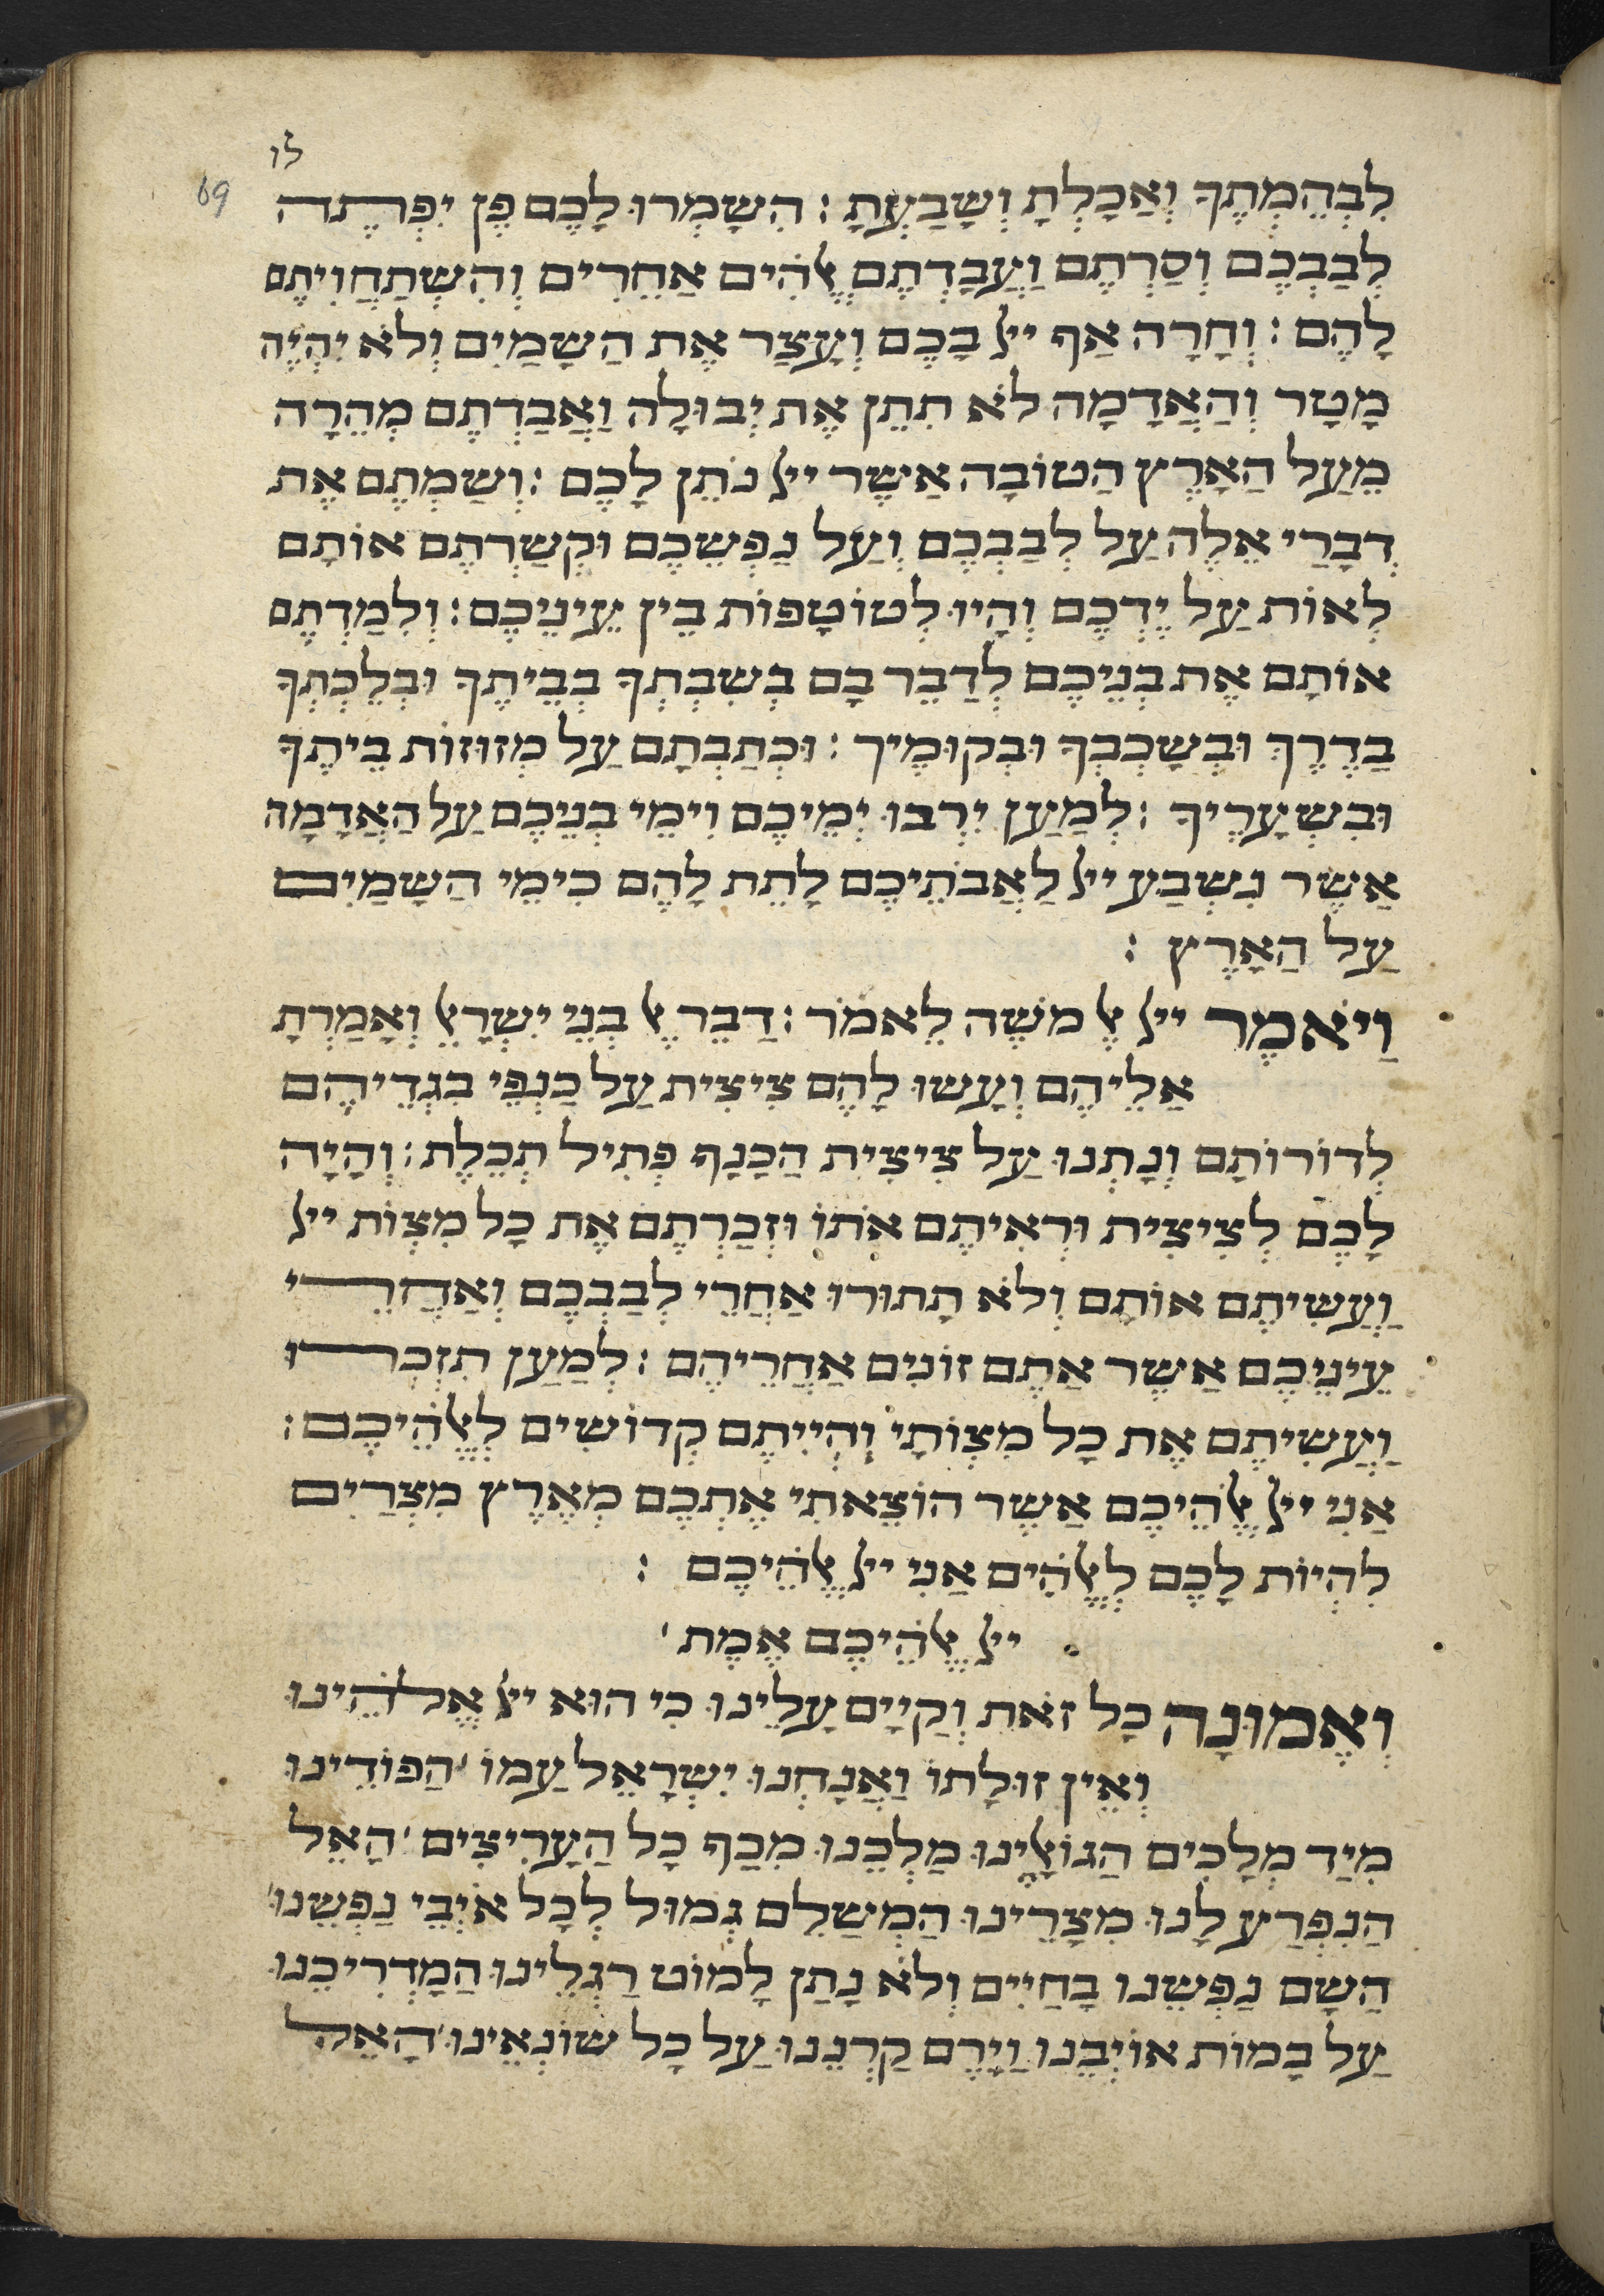 לו
69
לִבְהֵמְתֶךָ וְאַכָלְתָ וְשָבַעְתָ : הִשָמְרוּ לָכֶם פֶן יִפְתֶה
לְבַבְכֶם וְסַרְתֶם וַעֲבַדְתֶם אֱלֹהִים אֲחֵרִים וְהִשְתַחֲוִיתֶם
לָהֶם : וְחָרָה אַף ייל בָכֶם וְעָצַר אֶת הַשָמַיִם וְלֹא יִהְיֶה
מָטָר וְהָאֲדָמָה לֹא תִתֵן אֶת יְבוּלָה וַאֲבַדְתֶם מְהֵרָה
מֵעַל הָאָרֶץ הַטוֹבָה אֲשֶר ייל נֹתֵן לָכֶם : וְשַמְתֶם אֶת
דְבָרַי אֵלֶה עַל לְבַבְכֶם וְעַל נַפְשְכֶם וּקְשַרְתֶם אוֹתָם
לְאוֹת עַל יֶדְכֶם וְהָיוּ לְטוֹטָפוֹת בֵין עֵינֵיכֶם : וְלִמַדְתֶם
אוֹתָם אֶת בְנֵיכֶם לְדַבֵר בָם בְשִבְתְךָ בְבֵיתֶךָ וּבְלֶכְתְךָ
בַדֶרֶךְ וּבְשָכְבְךָ וּבְקוּמֶיךָ : וּכְתַבְתָם עַל מְזוּזוֹת בֵיתֶךָ
וּבִשְעָרֶיךָ : לְמַעַן יִרְבוּ יְמֵיכֶם וִימֵי בְנֵיכֶם עַל הָאֲדָמָה
אֲשֶר נִשְבַע ייל לַאֲבֹתֵיכֶם לָתֵת לָהֶם כִימֵי הַשָמַיִם
עַל הָאָרֶץ :
וַיֹאמֶר ייל אֶל מֹשֶה לֵאמֹר : דַבֵר אֶל בְנֵי יִשְרָאֵל וְאָמַרְתָ
אֲלֵיהֶם וְעָשוּ לָהֶם צִיצִית עַל כַנְפֵי בִגְדֵיהֶם
לְדוֹרוֹתָם וְנָתְנוּ עַל צִיצִית הַכָנָף פְתִיל תְכֵלֶת : וְהָיָה
לָכֶם לְצִיצִית וּרְאִיתֶם אֹתוֹ וּזְכַרְתֶם אֶת כָל מִצְוֹת ייל
וַעֲשִיתֶם אוֹתָם וְלֹא תָתוּרוּ אַחֲרֵי לְבַבְכֶם וְאַחֲרֵי
עֵינֵיכֶם אֲשֶר אַתֶם זוֹנִים אַחֲרֵיהֶם : לְמַעַן תִזְכְרוּ
וַעֲשִיתֶם אֶת כָל מִצְוֹתָי וִהְיִיתֶם קְדוֹשִים לֵאלֹהֵיכֶם :
אֲנִי ייל אֱלֹהֵיכֶם אֲשֶר הוֹצֵאתִי אֶתְכֶם מֵאֶרֶץ מִצְרַיִם
לִהְיוֹת לָכֶם לֵאלֹהִים אֲנִי ייל אֱלֹהֵיכֶם :
ייל אֱלֹהֵיכֶם אֱמֶת'
וְאֱמוּנָה כָל זֹאת וְקַיָים עָלֵינוּ כִי הוּא ייל אֱלֹהֵינוּ
וְאֵין זוּלָתוֹ וַאֲנָחְנוּ יִשְרָאֵל עַמוֹ' הַפוֹדֵינוּ
מִיַד מְלָכִים הַגוֹאֲלֵינוּ מַלְכֵנוּ מִכַף כָל הָעָרִיצִים' הָאֵל
הַנִפְרַע לָנוּ מִצָרֵינוּ הַמְשַלֵם גְמוּל לְכָל אֹיְבֵי נַפְשֵנוּ'
הַשָם נַפְשֵנוּ בָחַיִים וְלֹא נָתַן לָמוֹט רַגְלֵינוּ הַמַדְרִיכֵנוּ
עַל בָמוֹת אוֹיְבֵנוּ וַיָרֶם קַרְנֵנוּ עַל כָל שוֹנְאֵינוּ' הָאֵל